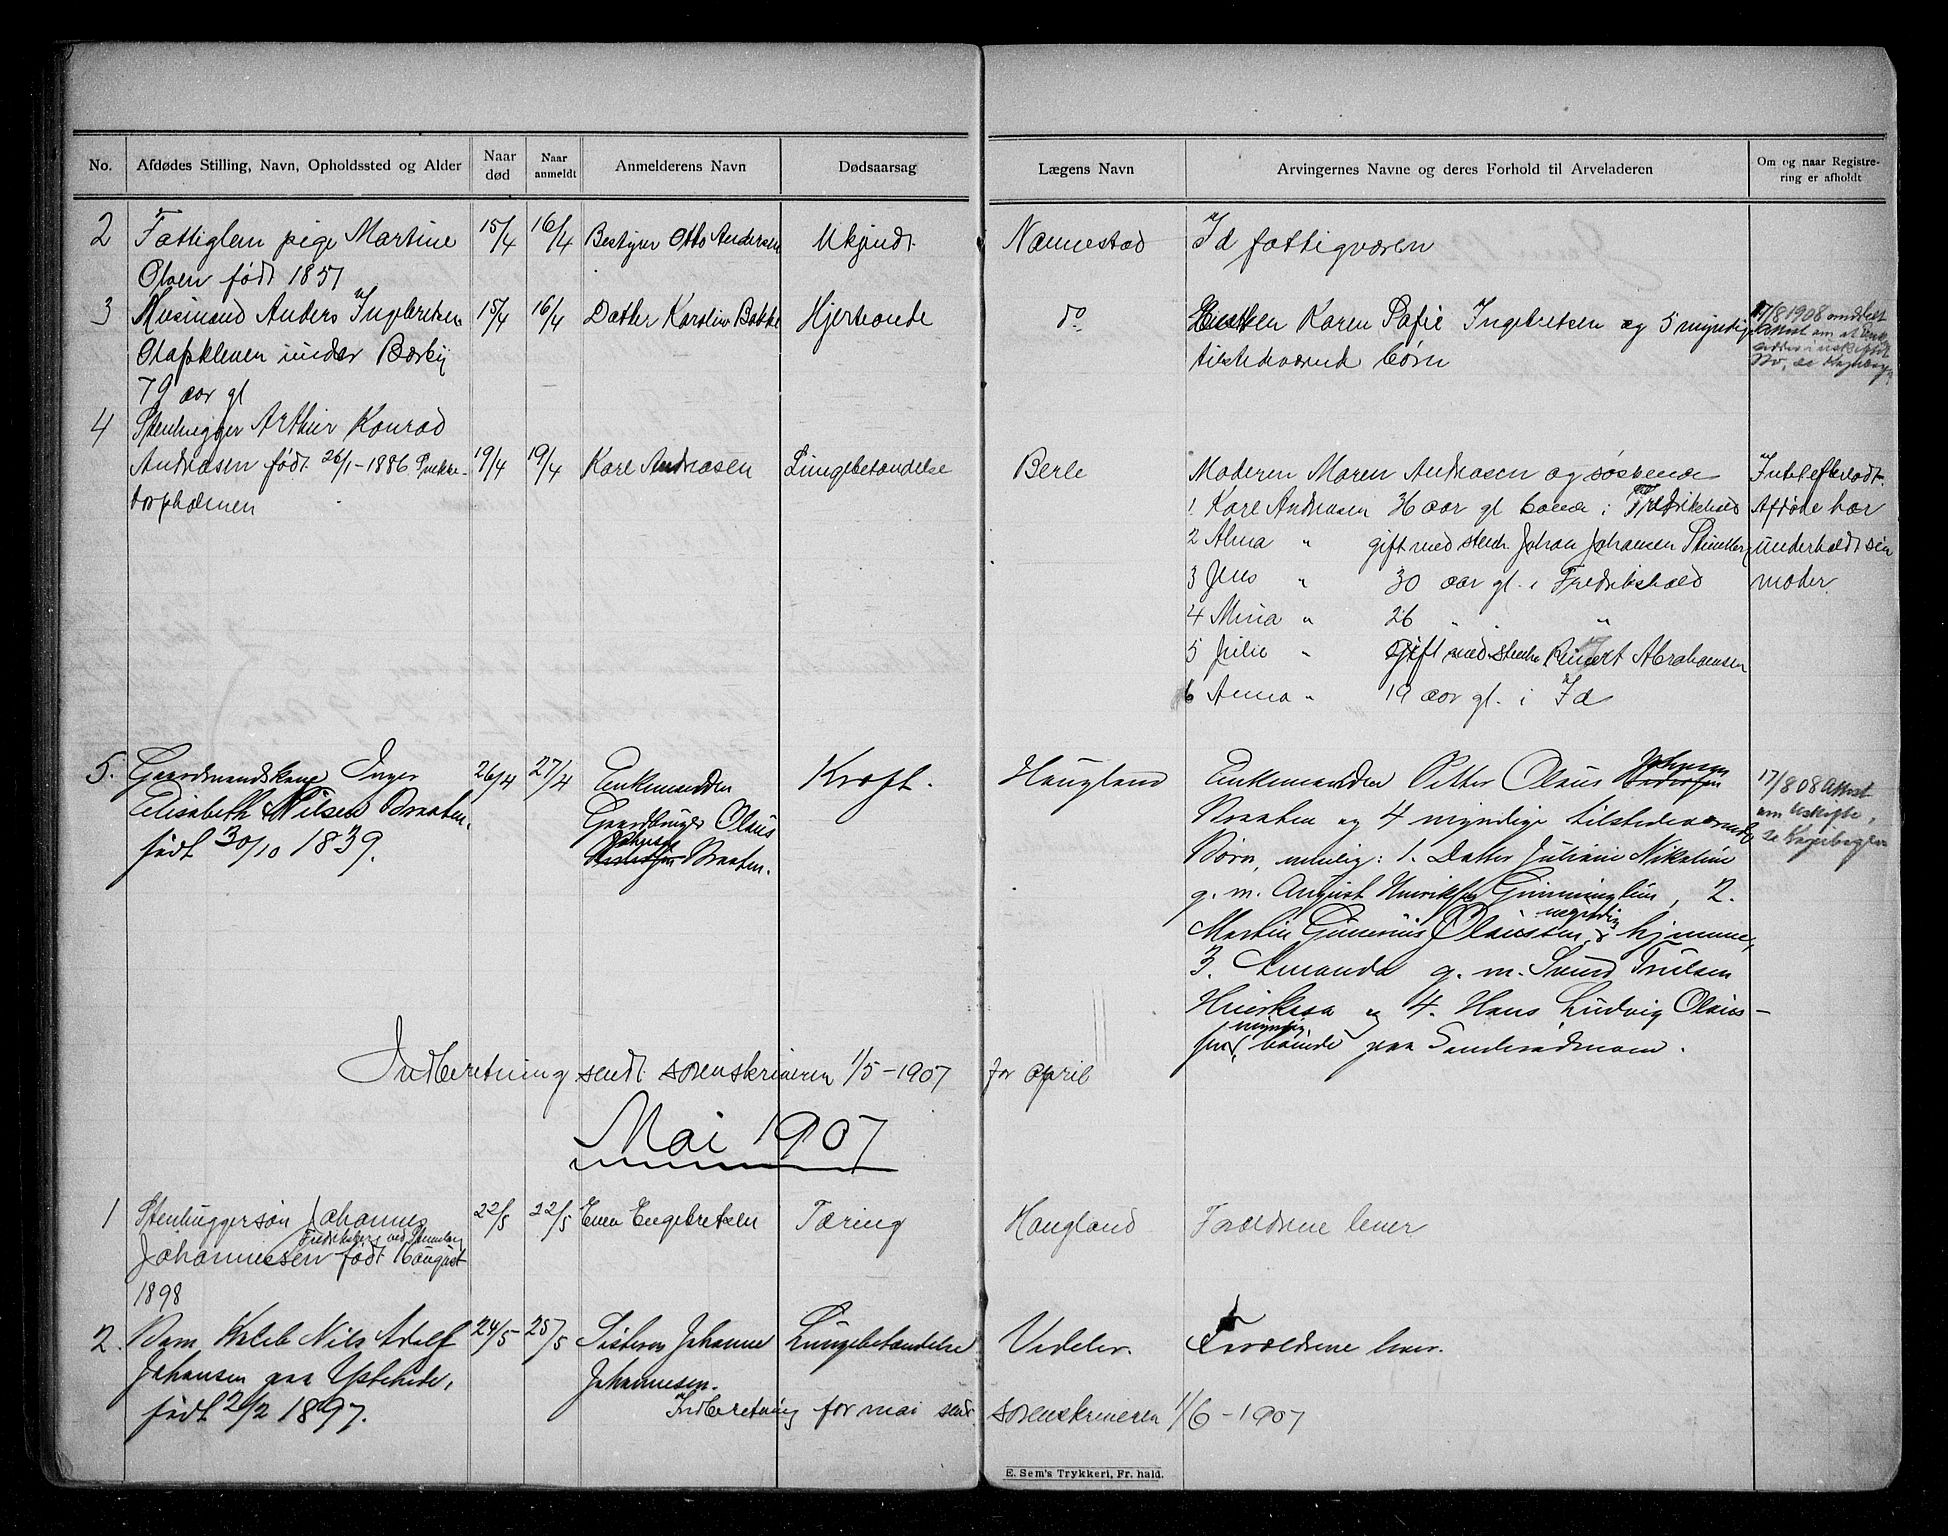 No.
Afdødes Stilling, Navn, Opholdssted og Alder
Naar død
Naar anmeldt
Anmelderens Navn
Dødsaarsag
Lægens Navn
Arvingernes Navne og deres Forhold til Arveladeren
Om og naar Registrering er afholdt
2 Fattiglem pige Martine 15/4 16/4 Bestyrer Otto Andersen Ukjendt Nannestad Id fattigvæsen
Olsen født 1857
3 Husmand Anders Ingebretsen 15/4 16/4 Datter Karoline Bakke Hjerteonde do Enken Karen Sofie Ingebretsen og 5 myndige 17/8 1908 anmeldt
Olafskleven under Bærby tilstedeværende børn
79 aar gl
4 Stenhugger Arthur Konrad
Andreasen født 26/1-1886 19/4 19/4 Karl Andreasen Lungebetændelse Berle Moderen Maren Andreasen og søskende Intet efterladt.
1 Karl Andreasen 36 aar gl boende i Fredrikshald Afdøde har
2 Alma " gift med stenh. Johan Johansen underholdt sin
3 Jens " 30 aar gl. i Fredrikshald moder.
4 Mina " 26 " "
5 Julie " Gift med stenh. Reinert Abrahamsen
6 Anna " 19 aar gl. i Id
5. Gaardmandskone Inger 26/4 27/4 Enkemanden Kræft. Haugland Enkemanden Petter Olaus Johansen 17/8 08 Attest
Elisabeth Nilsen Braaten, Gaardbruger Olaus Braaten og 4 myndige tilstedeværende om Uskifte,
født 30/10 1839. Johansen Braaten. Børn, nemlig: 1. Datter Juliane Nikoline se Kopibogen
g. m. August Henriksen , 2.
Martin Gunerius Olaussen, myndig, hjemme,
3. Amanda g. m. Svend Trulsen
og 4. Hans Ludvig Olaus-
sen, myndig, boende paa
Indberetning sendt sorenskriveren 1/5-1907 for april
Mai 1907
1 Stenhuggersøn Johannes 22/5 22/5 Even Engebretsen Tæring Haugland Forældrene lever
Johannessen født 16 august
1898
2. Barn Kaleb Nils Adolf 24/5 25/5 Søsteren Johanne Lungebetændelse Vedeler. Forældrene lever.
Johansen paa Ystehede, Johannesen.
født 2/2 1897. Indberetning for mai sendt sorenskriveren 1/6-1907
E. Sem's Trykkeri, Fr. hald.